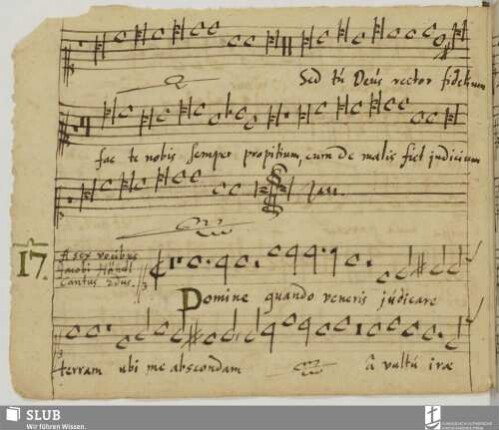 Sed tu Deus rector fidelium
fac te nobis semper propitium, cum de malis fiet judicium
17.
A sex vocibus
Jacobi Händl
Cantus 2dus.
Domine quando veneris judicare
terram ubi me abscondam
â vultu iræ
SLUB
Wir führen Wissen.